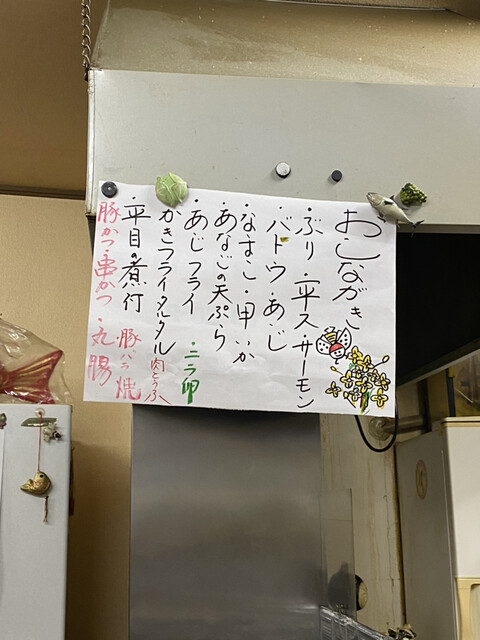 おしながき
・ぶり・平ス・サーモン
・バトウ・あじ
・なまこ・甲いか
あなごの天ぷら
・あじフライ ・ニラ卵
かきフライタルタル 肉とうふ
・平目の煮付 ・豚バラ焼
豚かつ・串かつ・丸腸